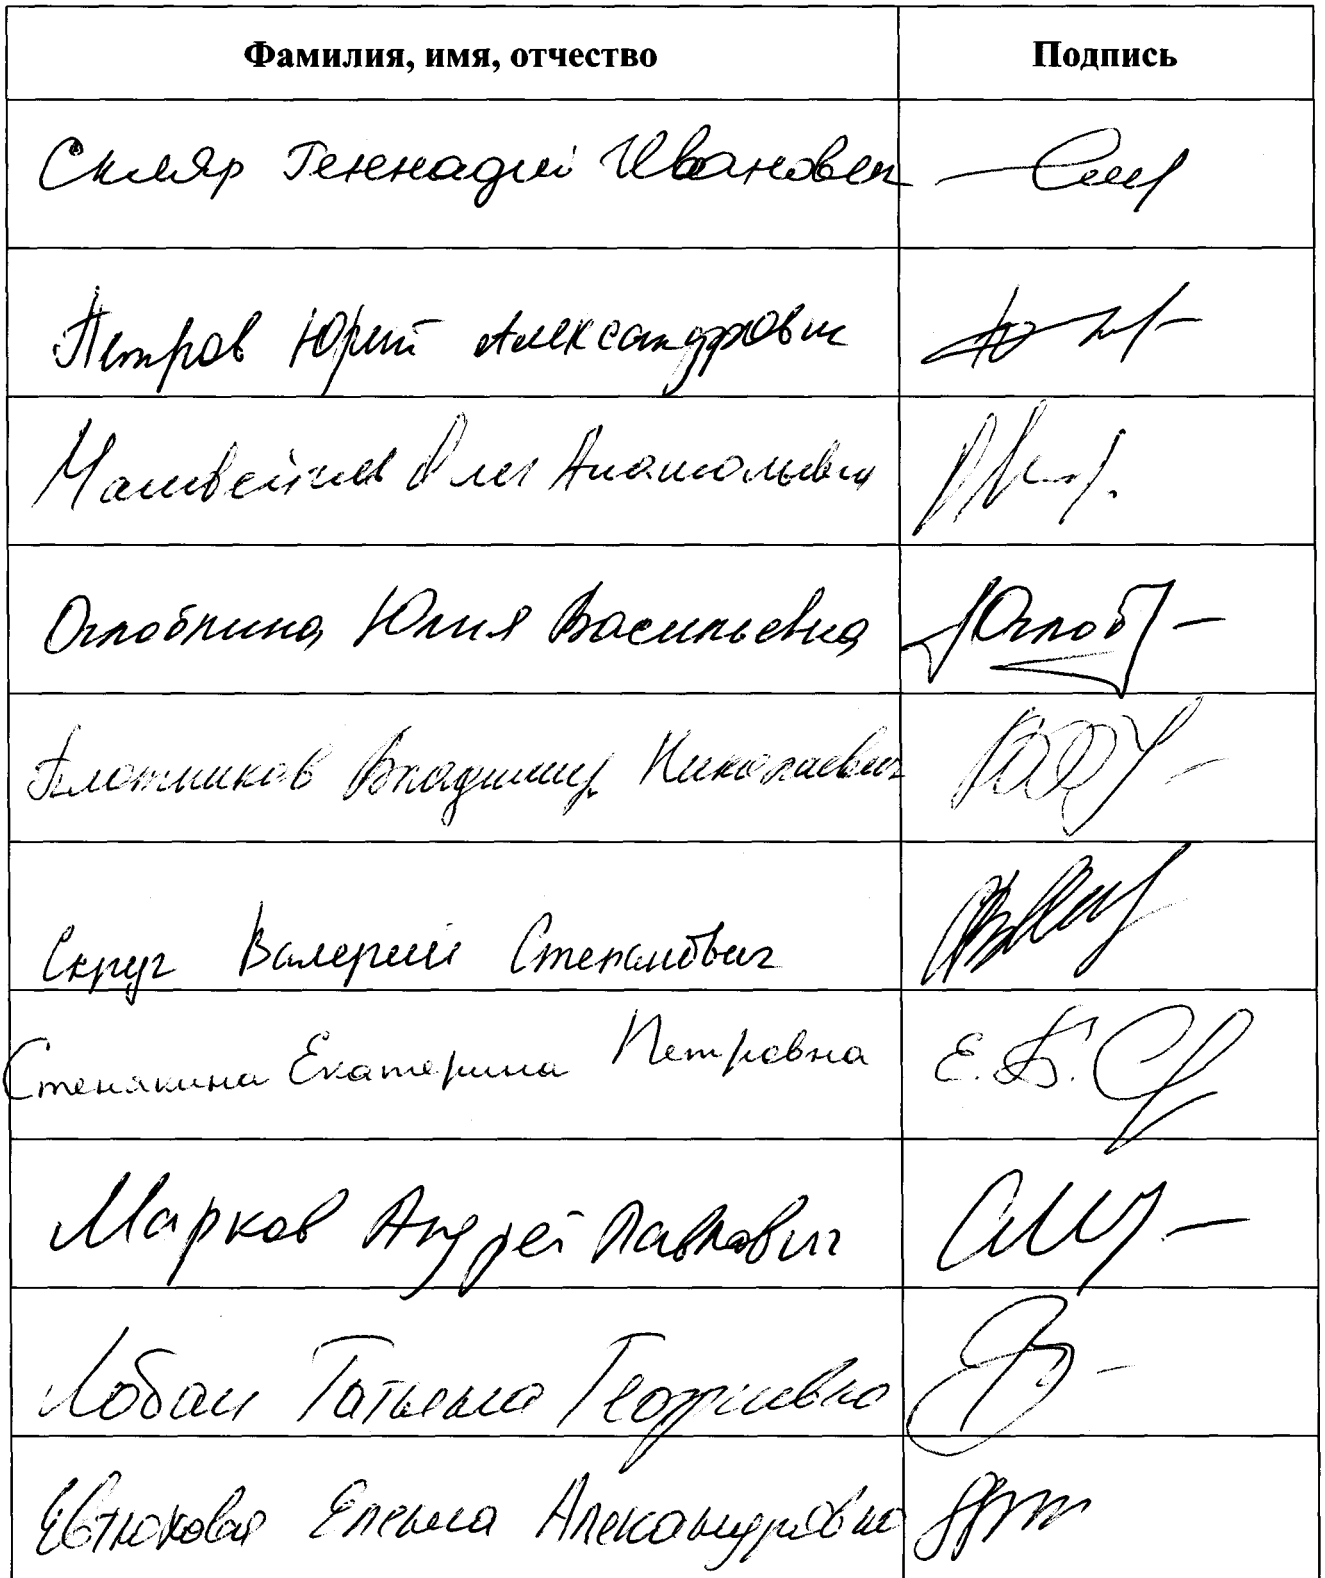 Фамилия, имя, отчество Подпись
Скляр Геннадий Иванович
Петров Юрий Александрович
Матвейчев Олег Анатольевич
Оглоблина Юлия Васильевна Оглоб
Плотников Владимир Николаевич
Скруг Валерий Степанович
Стенякина Екатерина Петровна
Марков Андрей Павлович
Лобач Татьяна Георгиевна
Евтюхова Елена Александровна